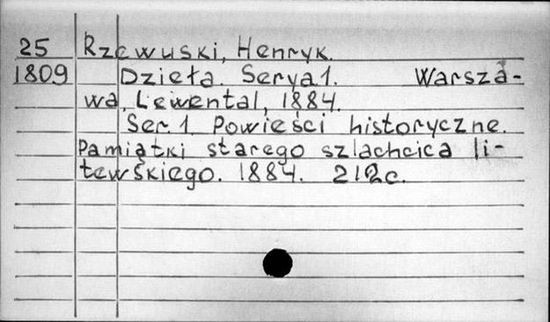 25 Rzewuski, Henryk.
1809 Dzieła Serya 1. Warsza-
wa, Lewental, 1884.
Ser. 1 Powieści historyczne.
Pamiątki starego szlachcica li-
tewskiego. 1884. 212 c.